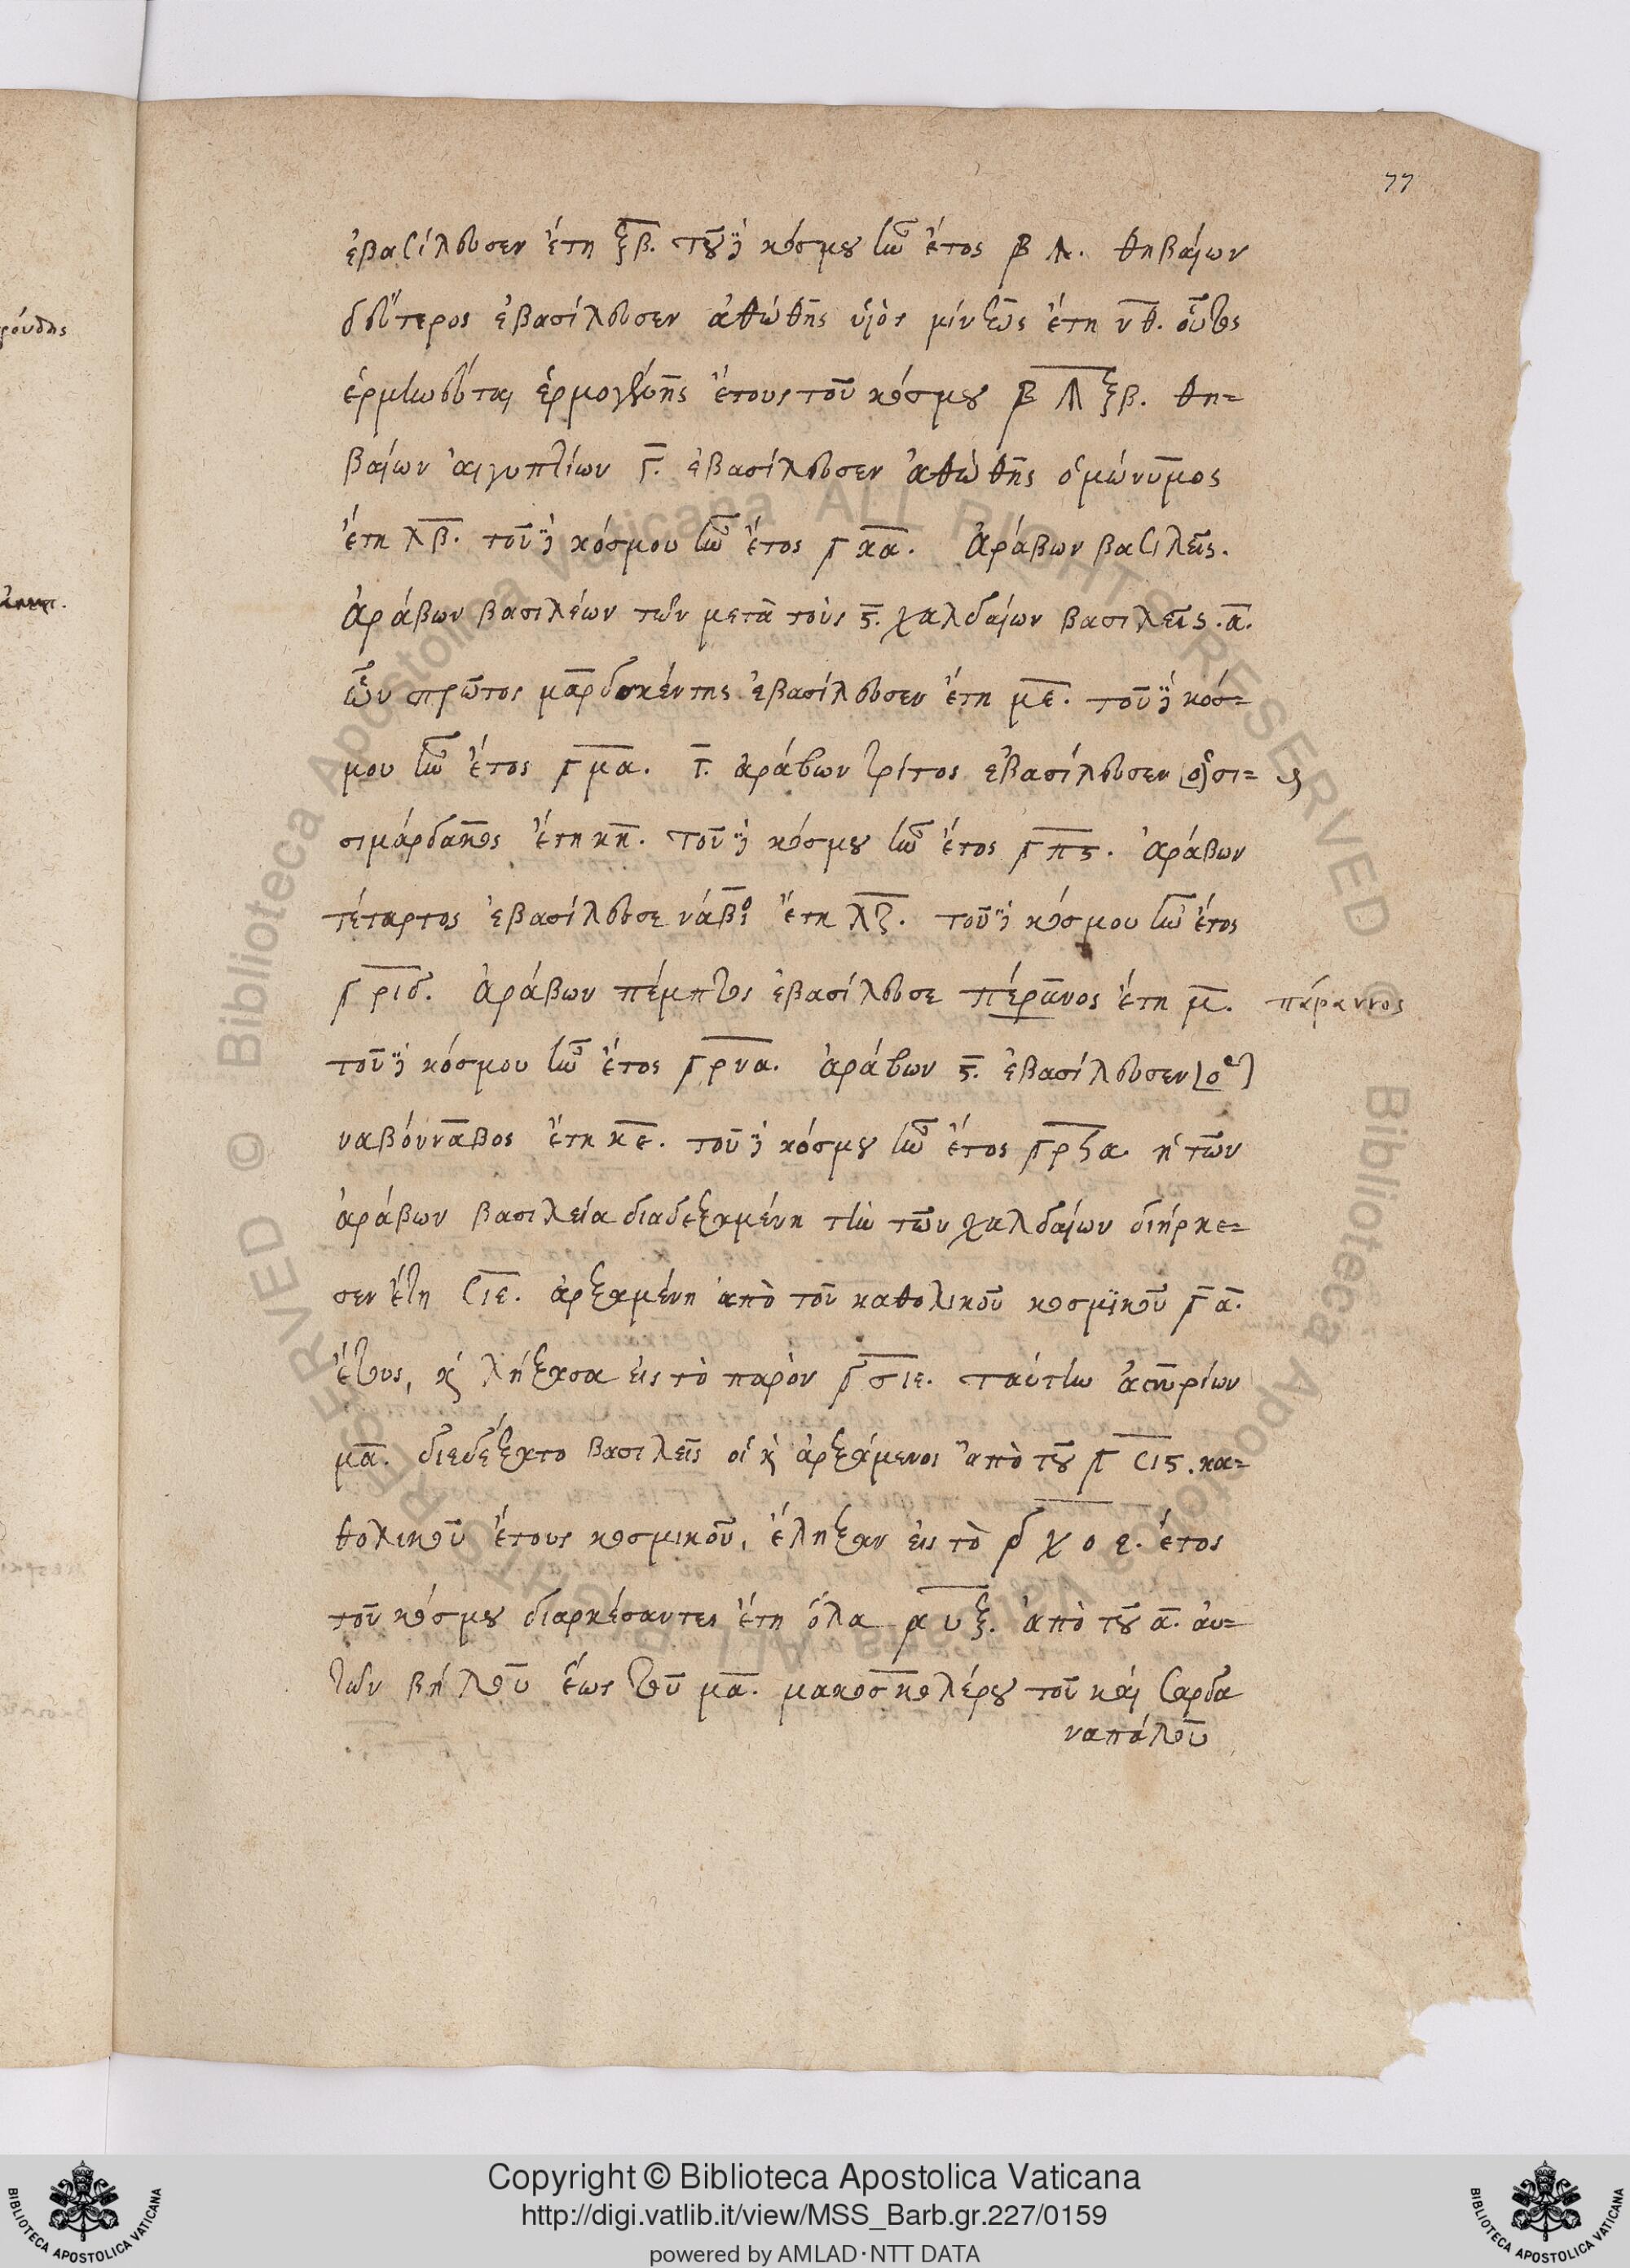 77
ἐβασίλευσεν ἔτη ξβ. τοῦ δὲ κόσμου ἦν ἔτος ͵β ϡ. θηβαίων
δεύτερος ἐβασίλευσεν ἀθώθης υἱὸς μίνεως ἔτη νθ. οὗτος
ἑρμηνεύεται ἑρμογένης ἔτους τοῦ κόσμου ͵β ϡ ξβ. θη=
βαίων αἰγυπτίων γ. ἐβασίλευσεν ἀθώθης ὁμώνυμος
ἔτη λβ. τοῦ δὲ κόσμου ἦν ἔτος ͵γ κα. Ἀράβων βασιλεῖς.
Ἀράβων βασιλέων τῶν μετὰ τοὺς ϛ. χαλδαίων βασιλεῖς. α.
ὧν πρῶτος μαρδοκέντης ἐβασίλευσεν ἔτη με. τοῦ δὲ κόσ=
μου ἦν ἔτος ͵γ μα. γ. ἀράβων τρίτος ἐβασίλευσεν [ὁ] σι=
σιμάρδακος ἔτη κη. τοῦ δὲ κόσμου ἦν ἔτος ͵γ πϛ. ἀράβων
τέταρτος ἐβασίλευσε νάβιος ἔτη λζ. τοῦ δὲ κόσμου ἦν ἔτος
͵γ ριδ. Ἀράβων πέμπτος ἐβασίλευσε πέρανος ἔτη μ.
πάραννος
τοῦ δὲ κόσμου ἦν ἔτος ͵γ ρνα. ἀράβων ϛ. ἐβασίλευσεν [ὁ]
ναβόνναβος ἔτη κε. τοῦ δὲ κόσμου ἦν ἔτος ͵γ ρϟα. ἡ τῶν
ἀράβων βασιλεία διαδεξαμένη τὴν τῶν χαλδαίων διήρκε=
σεν ἔτη σιε. ἀρξαμένη ἀπὸ τοῦ καθολικοῦ κοσμικοῦ ͵γ α.
ἔτους, καὶ λήξασα εἰς τὸ παρὸν ͵γ σιε. ταύτην ἀσσυρίων
μα. διεδέξατο βασιλεῖς οἱ καὶ ἀρξάμενοι ἀπὸ τοῦ ͵γ σιϛ. κα=
θολικοῦ ἔτους κοσμικοῦ, ἔληξαν εἰς τὸ ͵δ χ ο ε. ἔτος
τοῦ κόσμου διαρκέσαντες ἔτη ὅλα ͵α υ ξ. ἀπὸ τοῦ α. αὐ=
τῶν βήλου ἕως τοῦ μα. μακοσκολέρου τοῦ καὶ σαρδα
ναπάλου
Copyright © Biblioteca Apostolica Vaticana
http://digi.vatlib.it/view/MSS_Barb.gr.227/0159
powered by AMLAD·NTT DATA